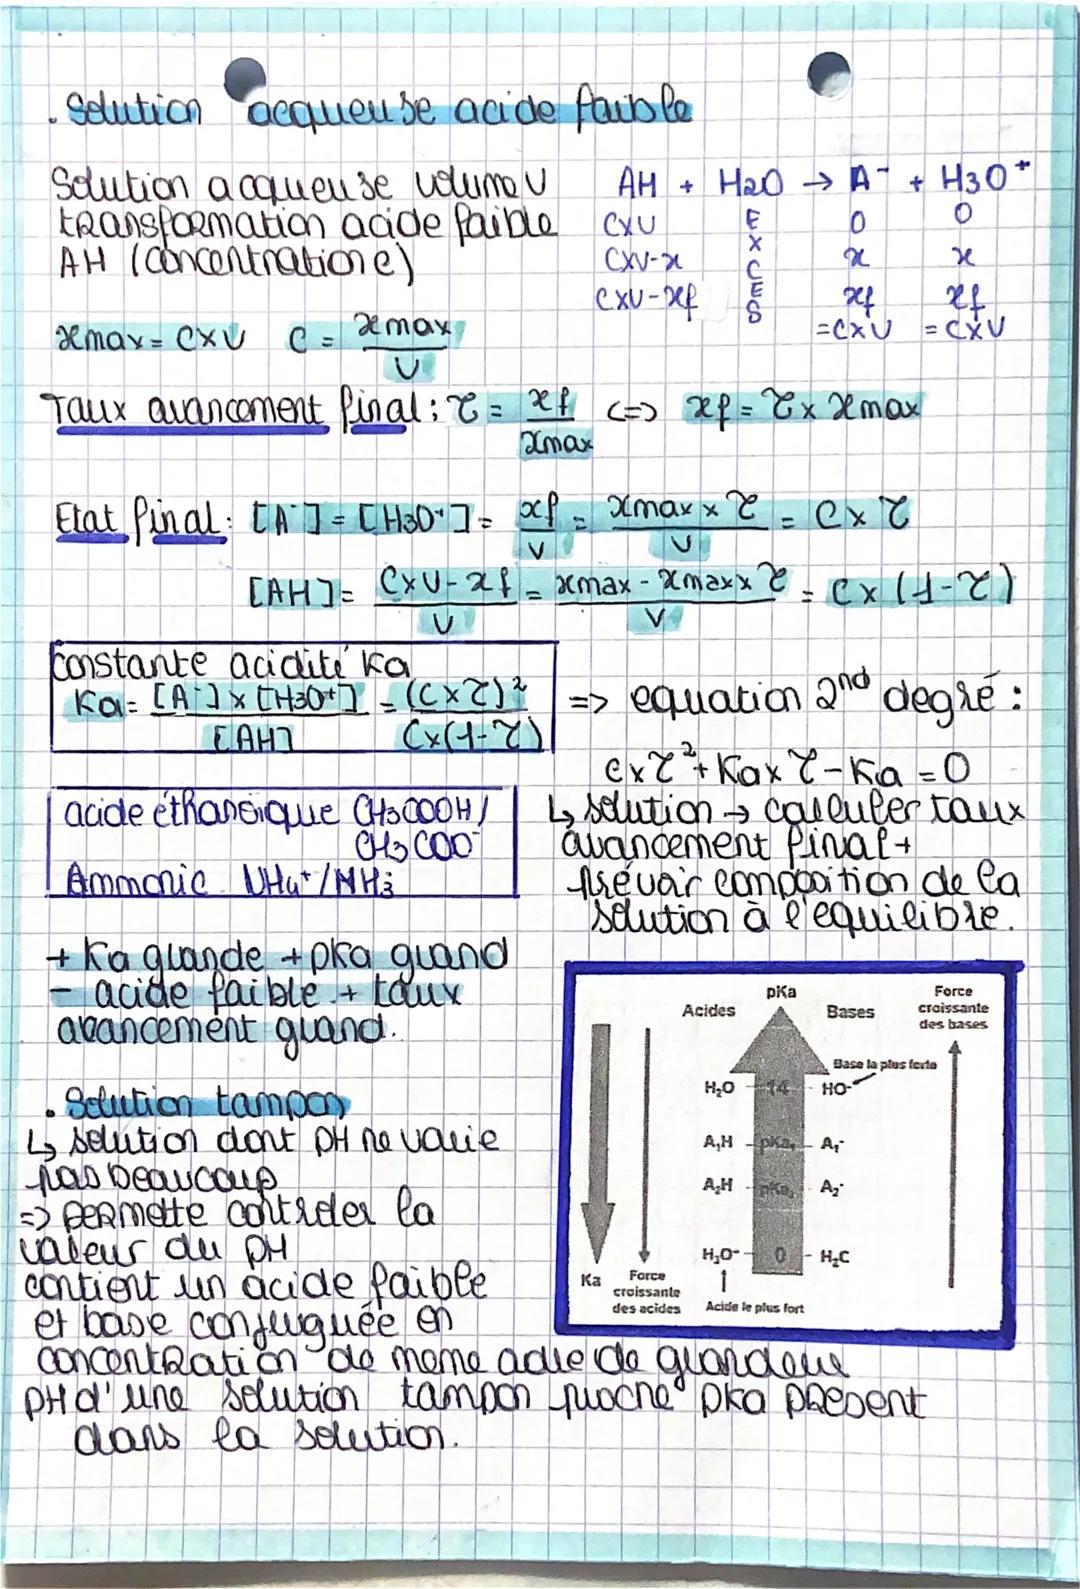 . Solution acqueuse acide faible
Solution acqueuse volume V
transformation acide faible
AH (concentration c)
AH + H2O → A⁻ + H3O⁺
CxV E 0 0
X
CxV-x C x x
CxV-xf E xf xf
S =CxV =CxV
xmax = CxV C = xmax/V
Taux avancement final : τ = xf/xmax <=> xf = τ x xmax
Etat final : [A⁻] = [H3O⁺] = xf/V = xmax x τ/V = C x τ
[AH] = CxV-xf/V = xmax - xmax x τ/V = C x (1-τ)
constante acidité Ka
Ka = [A⁻] x [H3O⁺]/[AH] = (C x τ)²/Cx(1-τ)
=> equation 2nd degré :
c x τ² + Ka x τ - Ka = 0
↳ solution → calculer taux
avancement final +
prévoir composition de la
solution à l'equilibre.
acide éthanoïque CH3COOH/
CH3COO⁻
Ammonic NH4⁺/NH3
+ Ka grande + pka grand
- acide faible + taux
avancement grand.
. Solution tampon
↳ solution dont pH ne varie
pas beaucoup
=> permette controler la
valeur du pH
contient un acide faible
et base conjuguée en
concentration de meme adre de grandeur
pH d'une solution tampon proche pka present
dans la solution.
pKa
Acides
Bases
Force
croissante
des bases
Base la plus forte
H₂O 14 HO-
A₁H pKa₁ A₁-
A₂H pKa₂ A₂-
H₃O- 0 H₂C
Ka
Force
croissante
des acides
Acide le plus fort